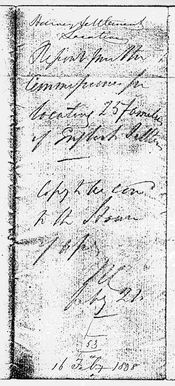 Harvey Settlement
Location
Report from the
Commissioners for
locating 25 families
of English Settlers
Copy to be
to the House
of
53
16 Feby 1838